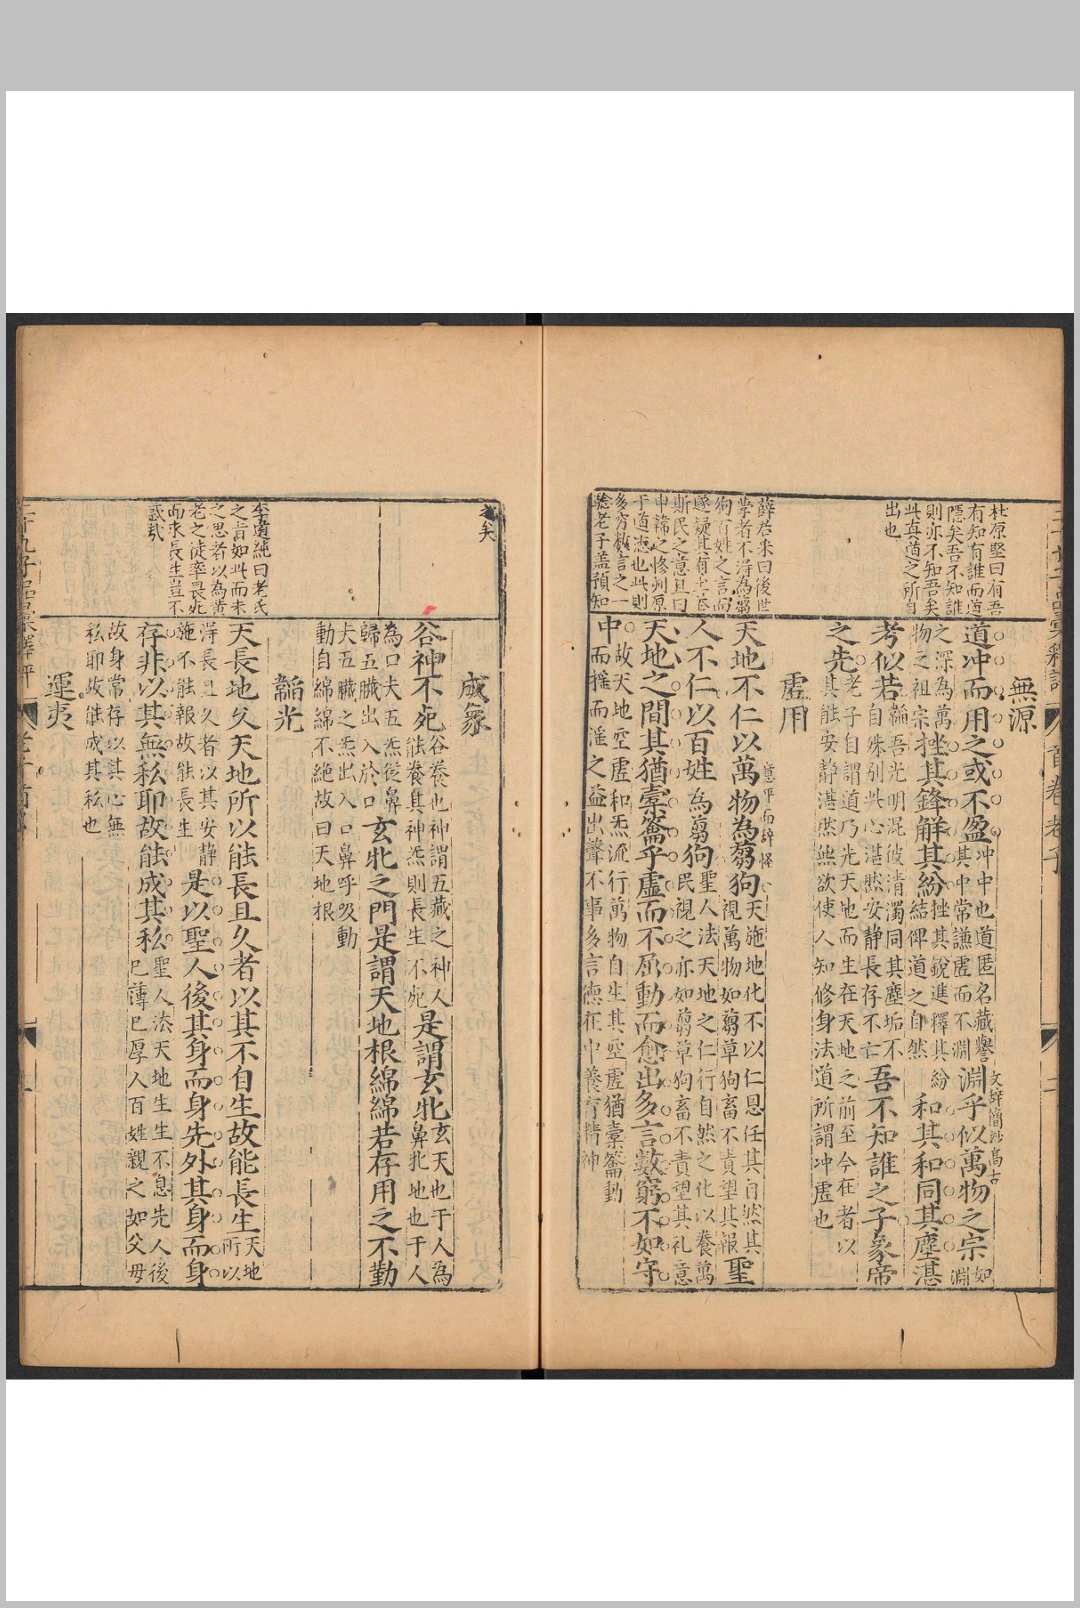 杜原堅曰有吾
有知有誰而道
隱矣吾不知誰
則亦不知吾矣
此真道之所自
出也
薛君采曰後世
學者不得為芻
狗百姓之言而
遂疑其有土苴
斯民之意且曰
申韓之慘刻原
于道德也此則
多窮數言之一
驗老子蓋預知
無源
道冲而用之或不盈冲中也道匿名藏譽
其中常謙虛而不淵淵乎似萬物之宗如淵
之深為萬
物之祖宗挫其鋒解其紛結俾道之自然挫其銳進釋其紛和其和同其塵湛
考似若韜吾光明混彼清濁同其塵垢不
自殊別此心湛然安靜長存不亡吾不知誰之子象帝
之先老子自謂道乃先天地而生在天地之前至今在者以
其能安靜湛然無欲使人知修身法道所謂冲虛也
文辭簡
高古
虛用
天地不仁以萬物為芻狗天施地化不以仁恩任其自然其
視萬物如芻草狗畜不責望其報聖
人不仁以百姓為芻狗聖人法天地之仁行自然之化以養萬
民視之亦如芻草狗畜不責望其礼意
天地之間其猶橐籥乎虛而不屈動而愈出多言數窮不如守
中故天地空虛和炁流行萬物自生其空虛猶橐籥動
而搖而遙之益出聲不事多言德在中養育精神
老子
之矣
李道純曰老氏
之旨如此而未
之思者以為黃
老之徒率畏死
而求長生豈不
惑哉
成象
谷神不死谷養也神謂五藏之神人
能養其神炁則長生不死是謂玄牝玄天也于人為
鼻牝地也于人
為口夫五炁從鼻
歸五臟出入於口玄牝之門是謂天地根綿綿若存用之不勤
夫五臟之炁出入口鼻呼吸動
動自綿綿不絶故曰天地根
韜光
天長地久天地所以能長且久者以其不自生故能長生天地
所以
得長且久者以其安靜
施不能報故能長生是以聖人後其身而身先外其身而身
存非以其無私耶故能成其私聖人法天地生生不息先人後
己薄己厚人百姓親之如父母
故身常存以其心無
私耶故能成其私也
運夷